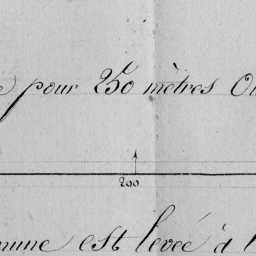 pour 250 mètres Ou
200
mune est levée à l